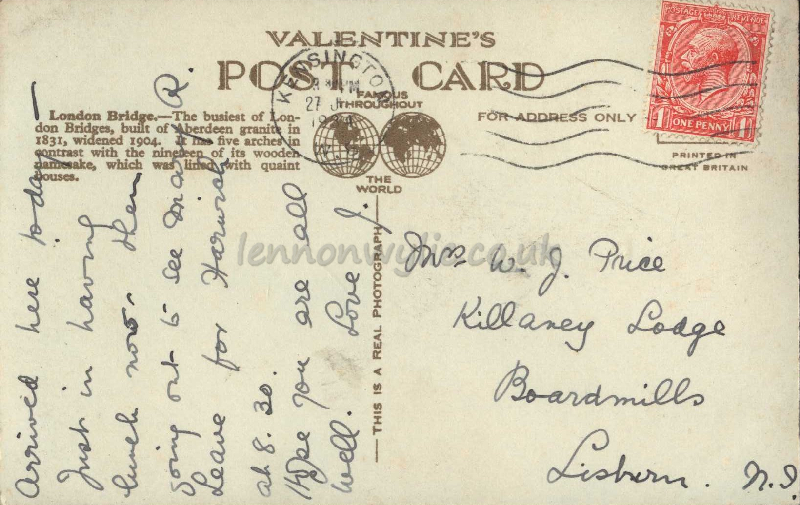 VALENTINE'S
POST CARD
FAMOUS
THROUGHOUT
THE
WORLD
London Bridge.—The busiest of Lon-
don Bridges, built of Aberdeen granite in
1831, widened 1904. It has five arches in
contrast with the nineteen of its wooden
namesake, which was lined with quaint
houses.
FOR ADDRESS ONLY
PRINTED IN
GREAT BRITAIN
KENSINGTON
27
POSTAGE REVENUE
1 ONE PENNY 1
THIS IS A REAL PHOTOGRAPH
Arrived here today —
Just in having
lunch now. Then
going out to see Mary R.
Leave for Harwich
at 8.30.
Hope you are all
well. Love J.
Mrs W. J. Price
Killaney Lodge
Boardmills
Lisburn. N.I.
lennonwylie.co.uk